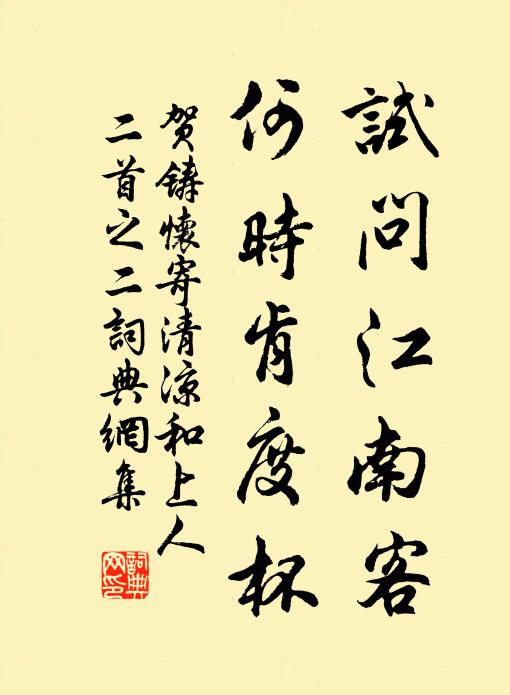 試問江南客
何時肯度杯
贺鑄懷寄清涼和上人
二首之二詞典網集
詞典
网印